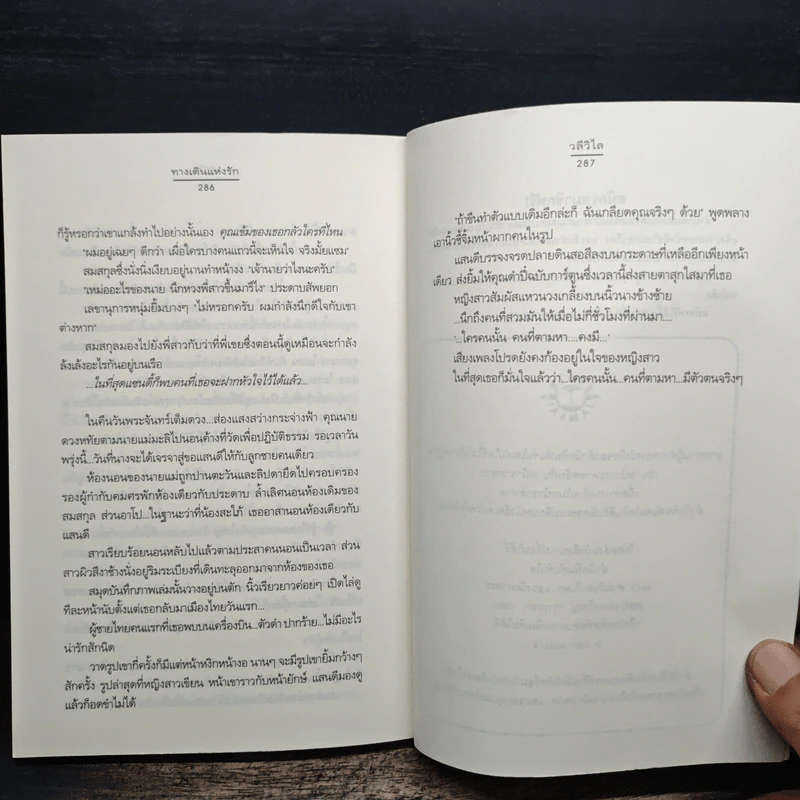 ทางเดินแห่งรัก
286
ก็รู้หรอกว่าเขาแกล้งทำไปอย่างนั้นเอง คุณเข้มของเธอกลัวใครที่ไหน
"ผมอยู่เฉยๆ ดีกว่า เผื่อใครบางคนแถวนี้จะเห็นใจ จริงมั้ยแซม"
สมสกุลซึ่งนั่งเงียบอยู่นานทำหน้างง "เจ้านายว่าไงนะครับ"
"เหม่ออะไรของนาย นึกหวงพี่สาวขึ้นมารึไง" ประดาบสัพยอก
เลขานุการหนุ่มยิ้มบางๆ "ไม่หรอกครับ ผมกำลังนึกดีใจกับเขา
ต่างหาก"
สมสกุลมองไปยังพี่สาวกับว่าที่พี่เขยซึ่งตอนนี้ดูเหมือนจะกำลัง
ล้งเล้งอะไรกันอยู่บนเรือ
...ในที่สุดแซนดี้ก็พบคนที่เธอจะฝากหัวใจไว้ได้แล้ว...
ในคืนวันพระจันทร์เต็มดวง...ส่องแสงสว่างกระจ่างฟ้า คุณนาย
ดวงหทัยตามนายแม่มะลิไปนอนค้างที่วัดเพื่อปฏิบัติธรรม รอเวลาวัน
พรุ่งนี้...วันที่นางจะได้เจรจาสู่ขอแสนดีให้กับลูกชายคนเดียว
ห้องนอนของนายแม่ถูกปานตะวันและลิปดายึดไปครอบครอง
รองผู้กำกับคมศรพักห้องเดียวกับประดาบ ล้ำเลิศนอนห้องเดิมของ
สมสกุล ส่วนอาโป...ในฐานะว่าที่น้องสะใภ้ เธออาสานอนห้องเดียวกับ
แสนดี
สาวเรียบร้อยนอนหลับไปแล้วตามประสาคนนอนเป็นเวลา ส่วน
สาวผิวสีงาช้างนั่งอยู่ริมระเบียงที่เดินทะลุออกมาจากห้องของเธอ
สมุดบันทึกภาพเล่มนั้นวางอยู่บนตัก นิ้วเรียวยาวค่อยๆ เปิดไล่ดู
ทีละหน้านับตั้งแต่เธอกลับมาเมืองไทยวันแรก...
ผู้ชายไทยคนแรกที่เธอพบบนเครื่องบิน...ตัวดำ ปากร้าย...ไม่มีอะไร
น่ารักสักนิด
วาดรูปเขากี่ครั้งก็มีแต่หน้าหงิกหน้างอ นานๆ จะมีรูปเขายิ้มกว้างๆ
สักครั้ง รูปล่าสุดที่หญิงสาวเขียน หน้าเขาราวกับหน้ายักษ์ แสนดีมองดู
แล้วก็อดขำไม่ได้
วลีวิไล
287
"ถ้าขืนทำตัวแบบเดิมอีกล่ะก็ ฉันเกลียดคุณจริงๆ ด้วย" พูดพลาง
เอานิ้วชี้จิ้มหน้าผากคนในรูป
แสนดีบรรจงจรดปลายดินสอสีลงบนกระดาษที่เหลืออีกเพียงหน้า
เดียว ส่งยิ้มให้คุณดำปี๋ฉบับการ์ตูนซึ่งเวลานี้ส่งสายตาสุกใสมาที่เธอ
หญิงสาวสัมผัสแหวนวงเกลี้ยงบนนิ้วนางข้างซ้าย
...นึกถึงคนที่สวมมันให้เมื่อไม่กี่ชั่วโมงที่ผ่านมา...
'...ใครคนนั้น คนที่ตามหา....คงมี...'
เสียงเพลงโปรดยังคงก้องอยู่ในใจของหญิงสาว
ในที่สุดเธอก็มั่นใจแล้วว่า...ใครคนนั้น...คนที่ตามหา...มีตัวตนจริงๆ